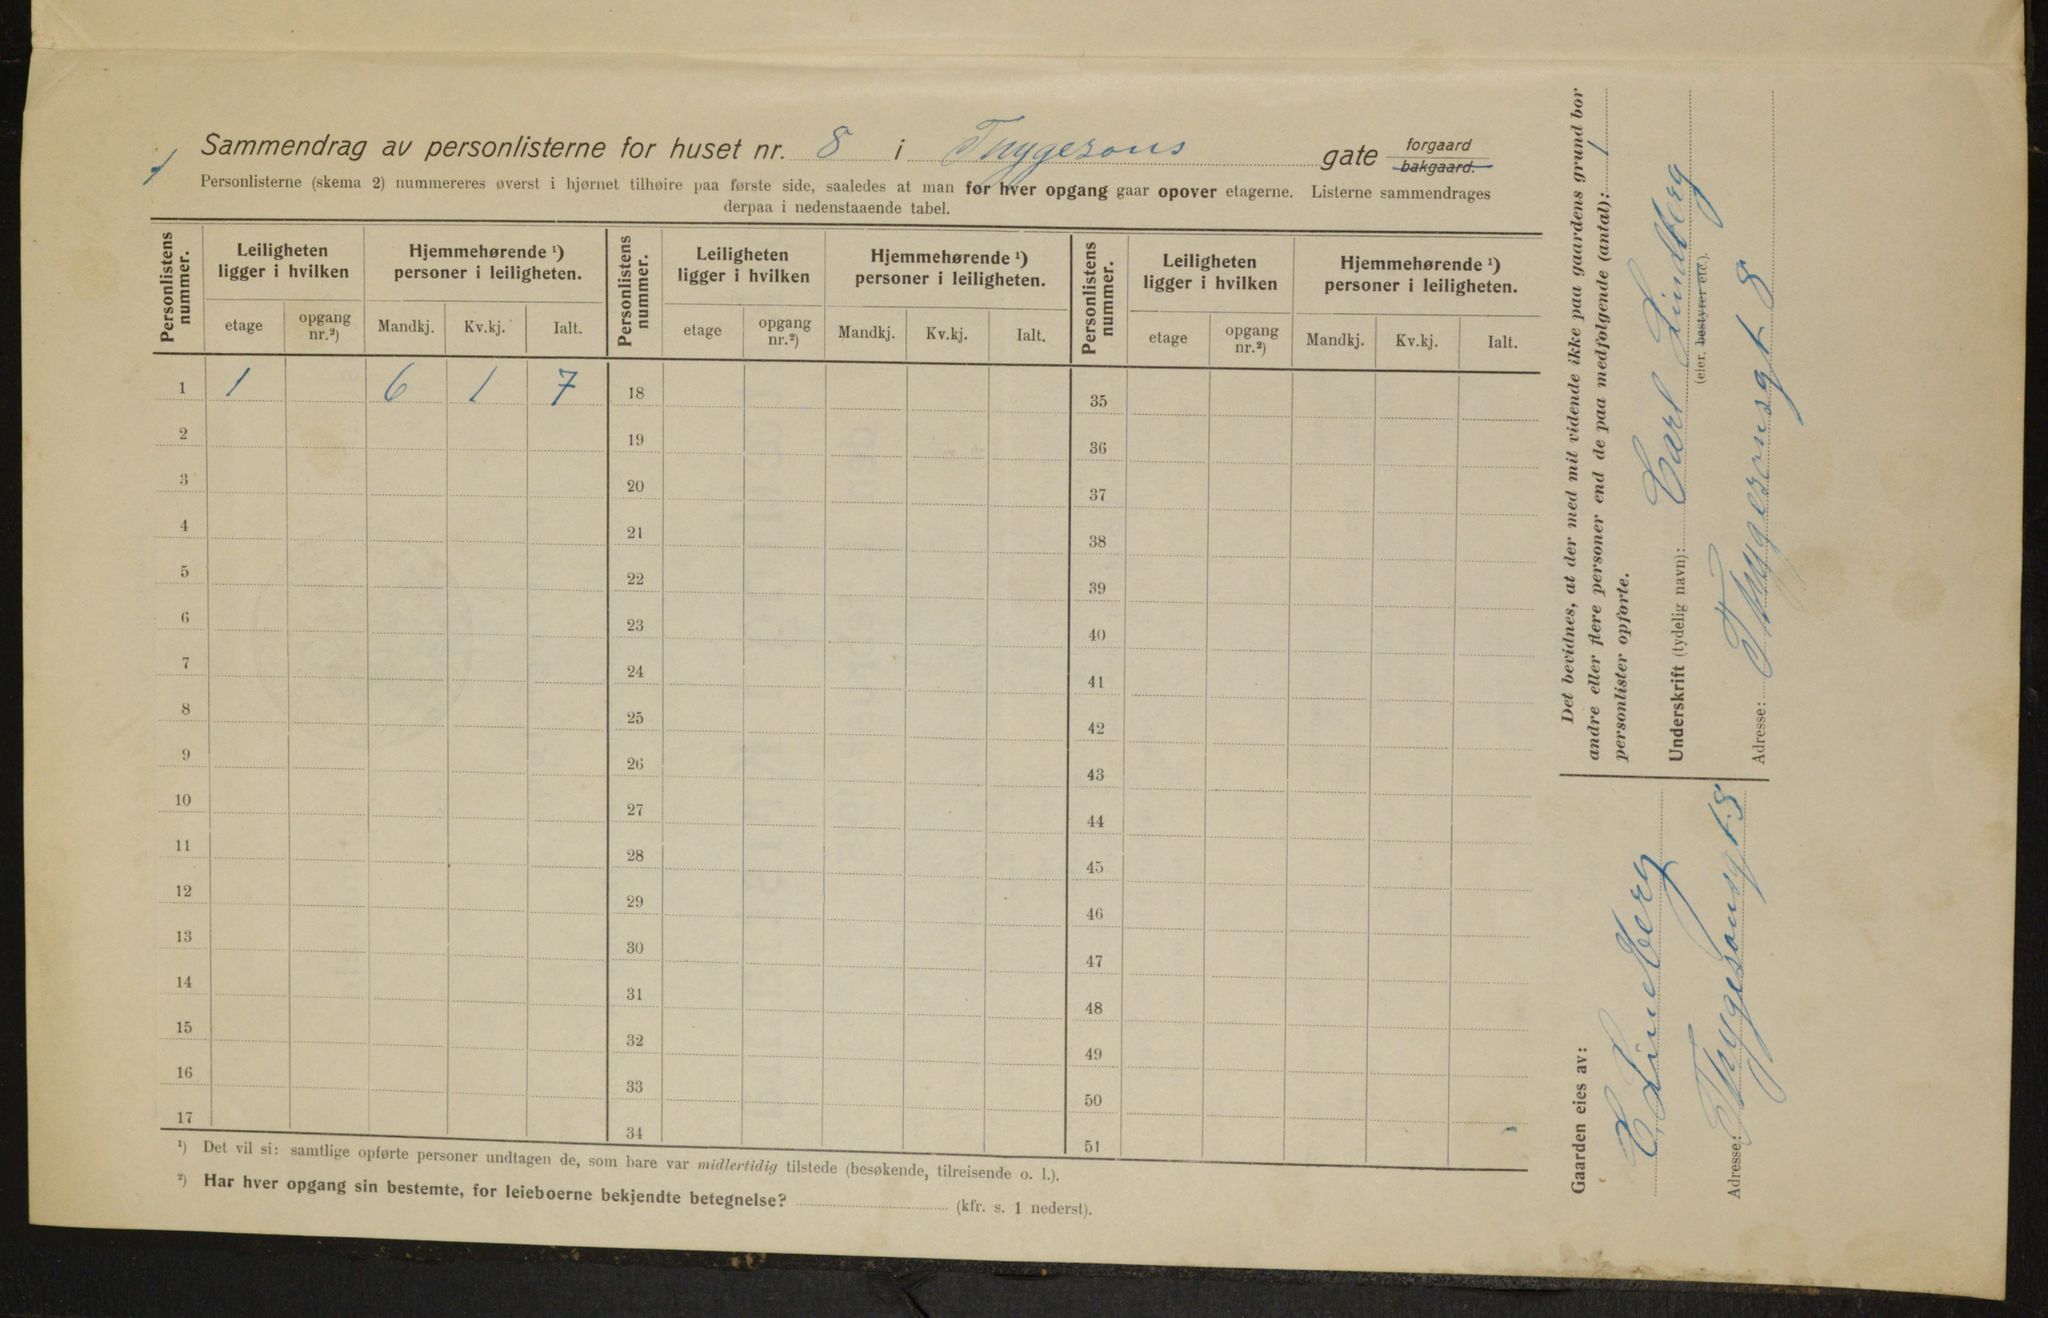 1
Sammendrag av personlisterne for huset nr. 8 i Thygesons gate forgaard bakgaard.
Personlisterne (skema 2) nummereres øverst i hjørnet tilhøire paa første side, saaledes at man for hver opgang gaar opover etagerne. Listerne sammendrages
derpaa i nedenstaaende tabel.
Personlistens nummer. Leiligheten ligger i hvilken Hjemmehørende ¹) personer i leiligheten. Personlistens nummer. Leiligheten ligger i hvilken Hjemmehørende ¹) personer i leiligheten. Personlistens nummer. Leiligheten ligger i hvilken Hjemmehørende ¹) personer i leiligheten.
etage opgang nr.²) Mandkj. Kv.kj. Ialt. etage opgang nr.²) Mandkj. Kv.kj. Ialt. etage opgang nr.²) Mandkj. Kv.kj. Ialt.
1 1 6 1 7 18 35
2 19 36
3 20 37
4 21 38
5 22 39
6 23 40
7 24 41
8 25 42
9 26 43
10 27 44
11 28 45
12 29 46
13 30 47
14 31 48
15 32 49
16 33 50
17 34 51
¹) Det vil si: samtlige opførte personer undtagen de, som bare var midlertidig tilstede (besøkende, tilreisende o. l.).
²) Har hver opgang sin bestemte, for leieboerne bekjendte betegnelse? (kfr. s. 1 nederst).
Det bevidnes, at der med mit vidende ikke paa gaardens grund bor
andre eller flere personer end de paa medfølgende (antal): 1
personlister opførte.
Underskrift (tydelig navn): Carl Lindberg
(eier, bestyrer etc.).
Adresse: Thygesonsgt 8
Gaarden eies av:
C. Lindberg
Adresse: Thygesonsgt 8